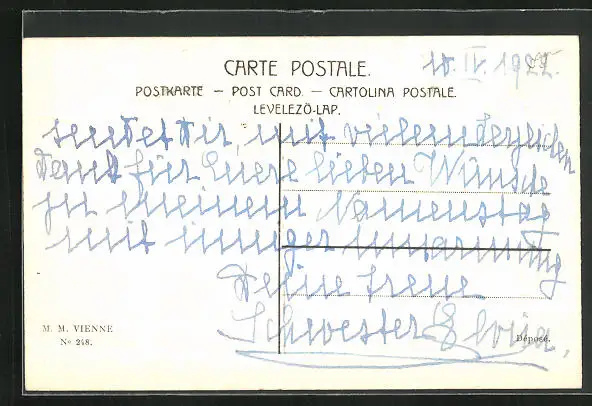 CARTE POSTALE.
10. IV. 1922.
POSTKARTE — POST CARD. — CARTOLINA POSTALE.
LEVELEZÖ-LAP.
sendet Dir, mit vielem herzlichen
Dank für Euere lieben Wünsche
zu meinem Namenstag
mit inniger Umarmung
Deine treue
Schwester
M. M. VIENNE
No 248.
Déposé.